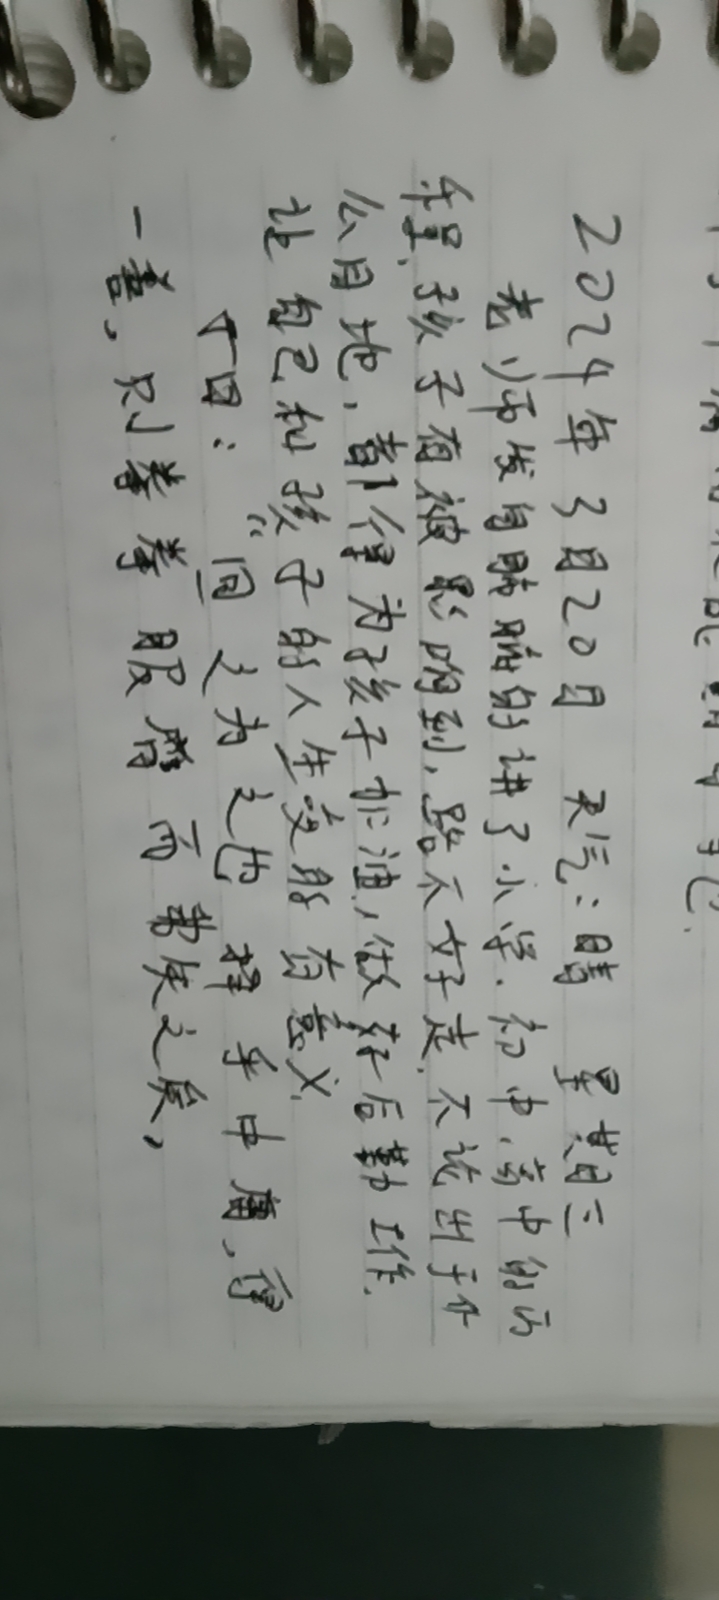 2024年3月20日 天气:晴 星期三
老师发自肺腑的讲了小学.初中.高中的历
孩子有被影响到,路不好走.不论出于什
么目地,都得为孩子加油,做好后勤工作.
让自己和孩子的人生变的有意义.
曰:“回之为之也 择乎中庸,得
一善,则拳拳服膺而弗失之矣,